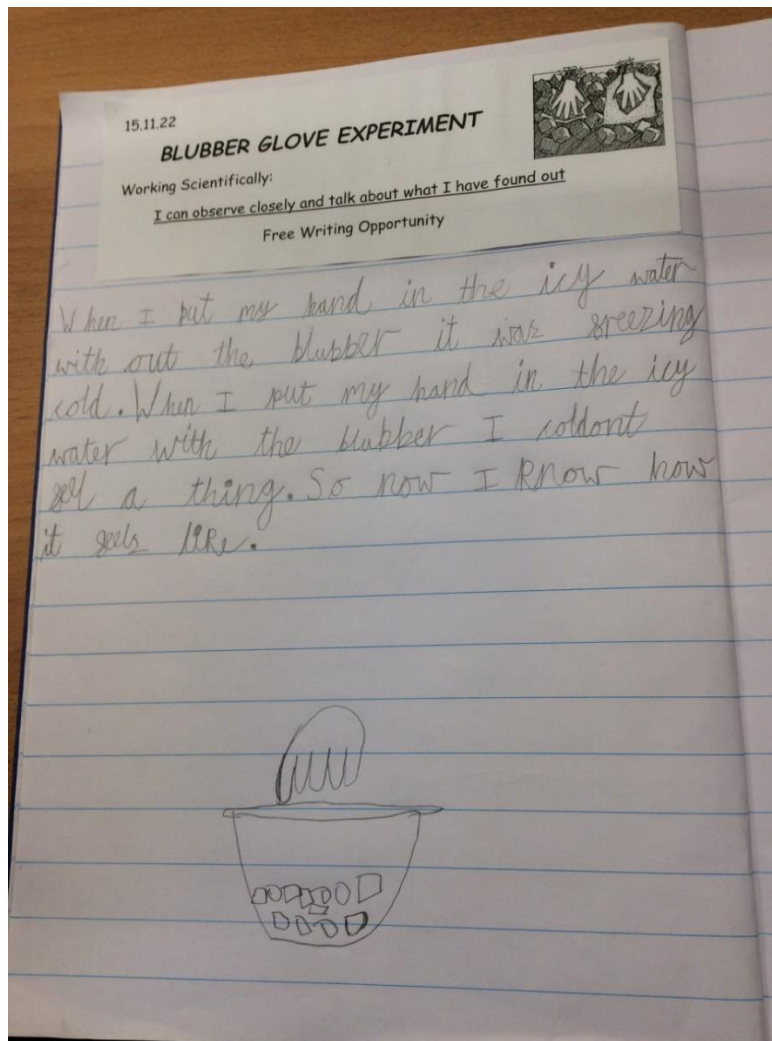 15.11.22
BLUBBER GLOVE EXPERIMENT
Working Scientifically:
I can observe closely and talk about what I have found out
Free Writing Opportunity
When I put my hand in the icy water
with out the blubber it was freezing
cold. When I put my hand in the icy
water with the blubber I coldont
feel a thing. So now I know how
it feels like.